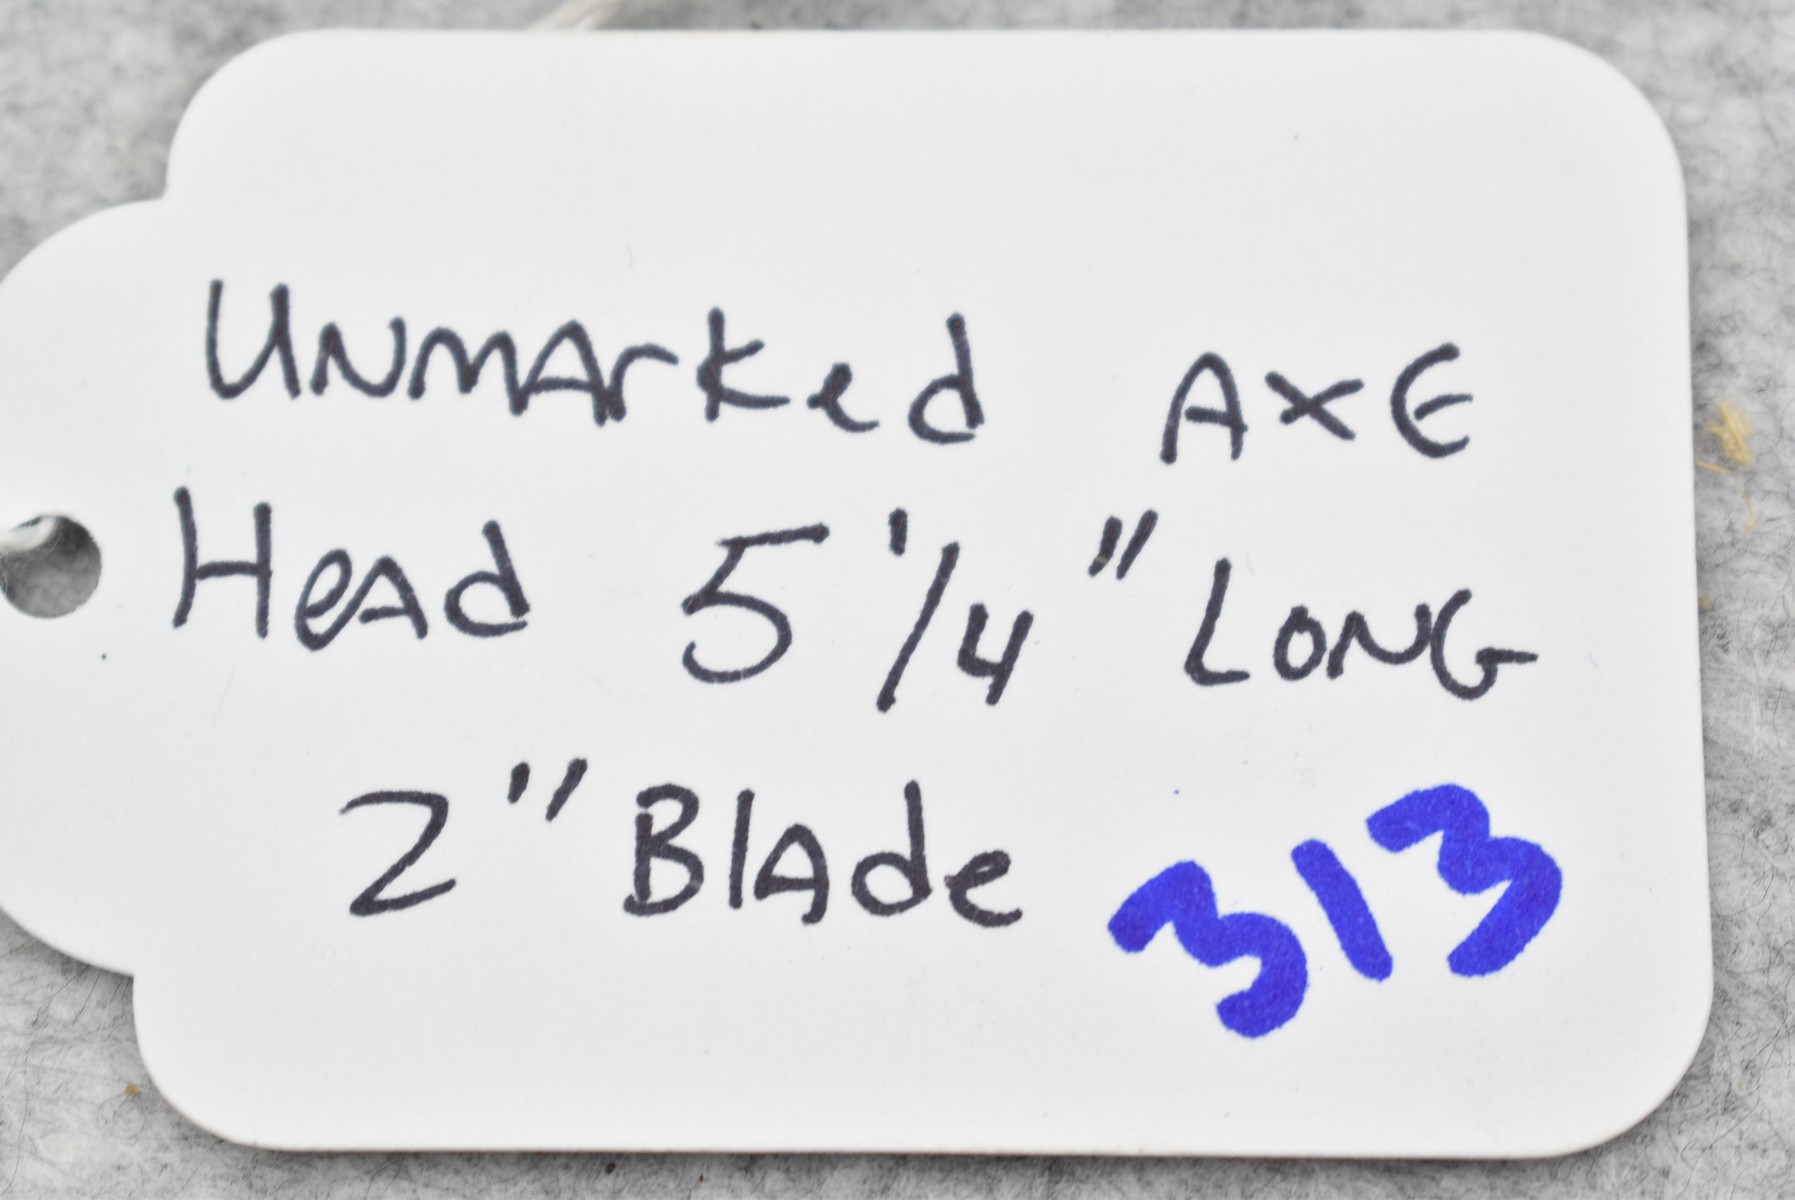 Unmarked Axe
Head 5 1/4" Long
2" Blade 313